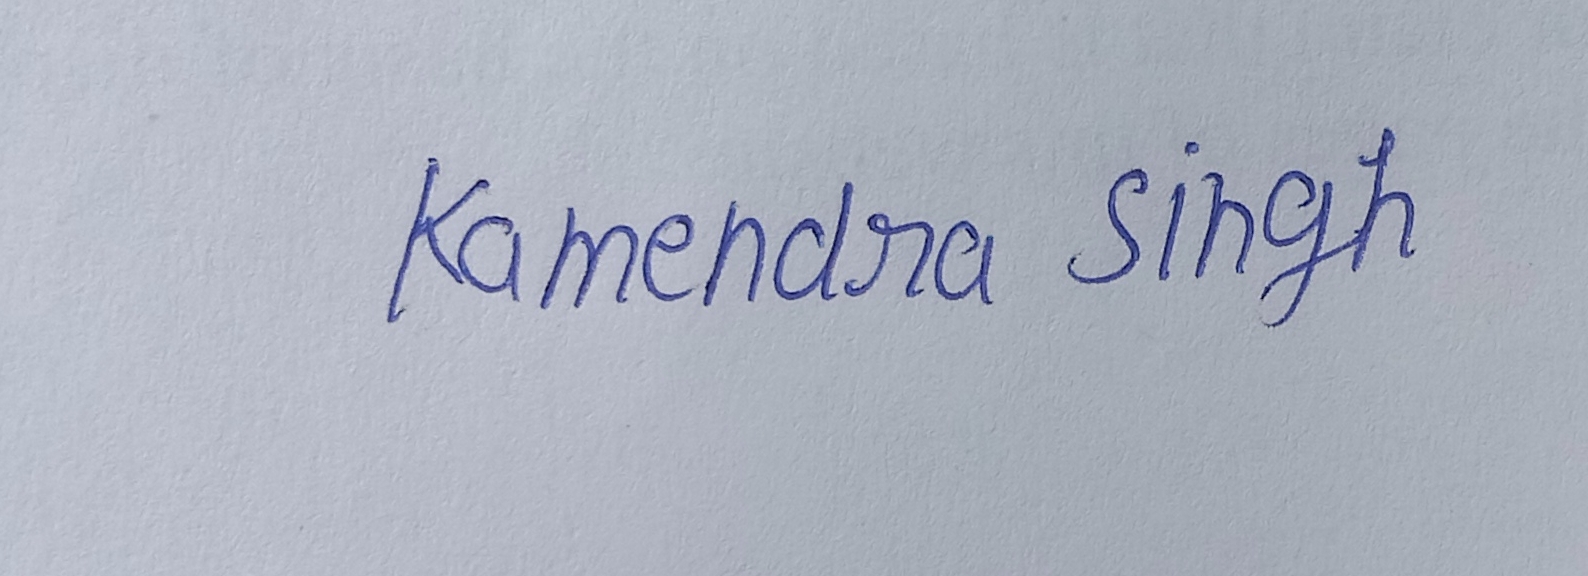 Kamendra Singh